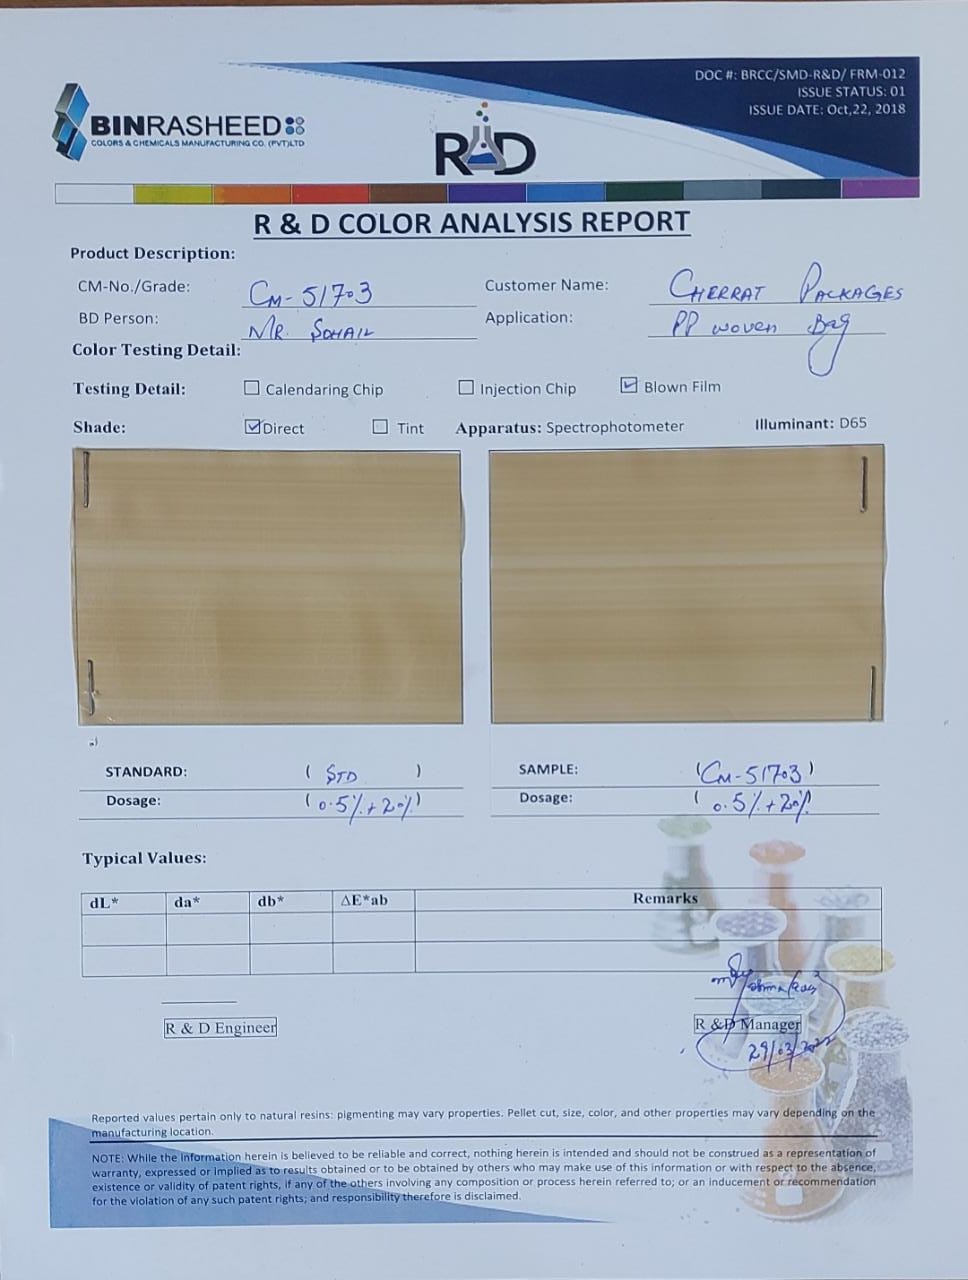 DOC #: BRCC/SMD-R&D/ FRM-012
ISSUE STATUS: 01
ISSUE DATE: Oct,22, 2018
BINRASHEED
COLORS & CHEMICALS MANUFACTURING CO. (PVT)LTD
R&D
R & D COLOR ANALYSIS REPORT
Product Description:
CM-No./Grade: CM-51703 Customer Name: CHERRAT PACKAGES
BD Person: MR. SOHAIL Application: PP woven Bag
Color Testing Detail:
Testing Detail: Calendaring Chip Injection Chip Blown Film
Shade: Direct Tint Apparatus: Spectrophotometer Illuminant: D65
STANDARD: ( STD ) SAMPLE: (CM-51703)
Dosage: (0.5%+20%) Dosage: ( 0.5%+20%
Typical Values:
dL* da* db* ΔE*ab Remarks
R & D Engineer R & D Manager
29/03/2022
Reported values pertain only to natural resins: pigmenting may vary properties. Pellet cut, size, color, and other properties may vary depending on the
manufacturing location.
NOTE: While the information herein is believed to be reliable and correct, nothing herein is intended and should not be construed as a representation of
warranty, expressed or implied as to results obtained or to be obtained by others who may make use of this information or with respect to the absence,
existence or validity of patent rights, if any of the others involving any composition or process herein referred to; or an inducement or recommendation
for the violation of any such patent rights; and responsibility therefore is disclaimed.